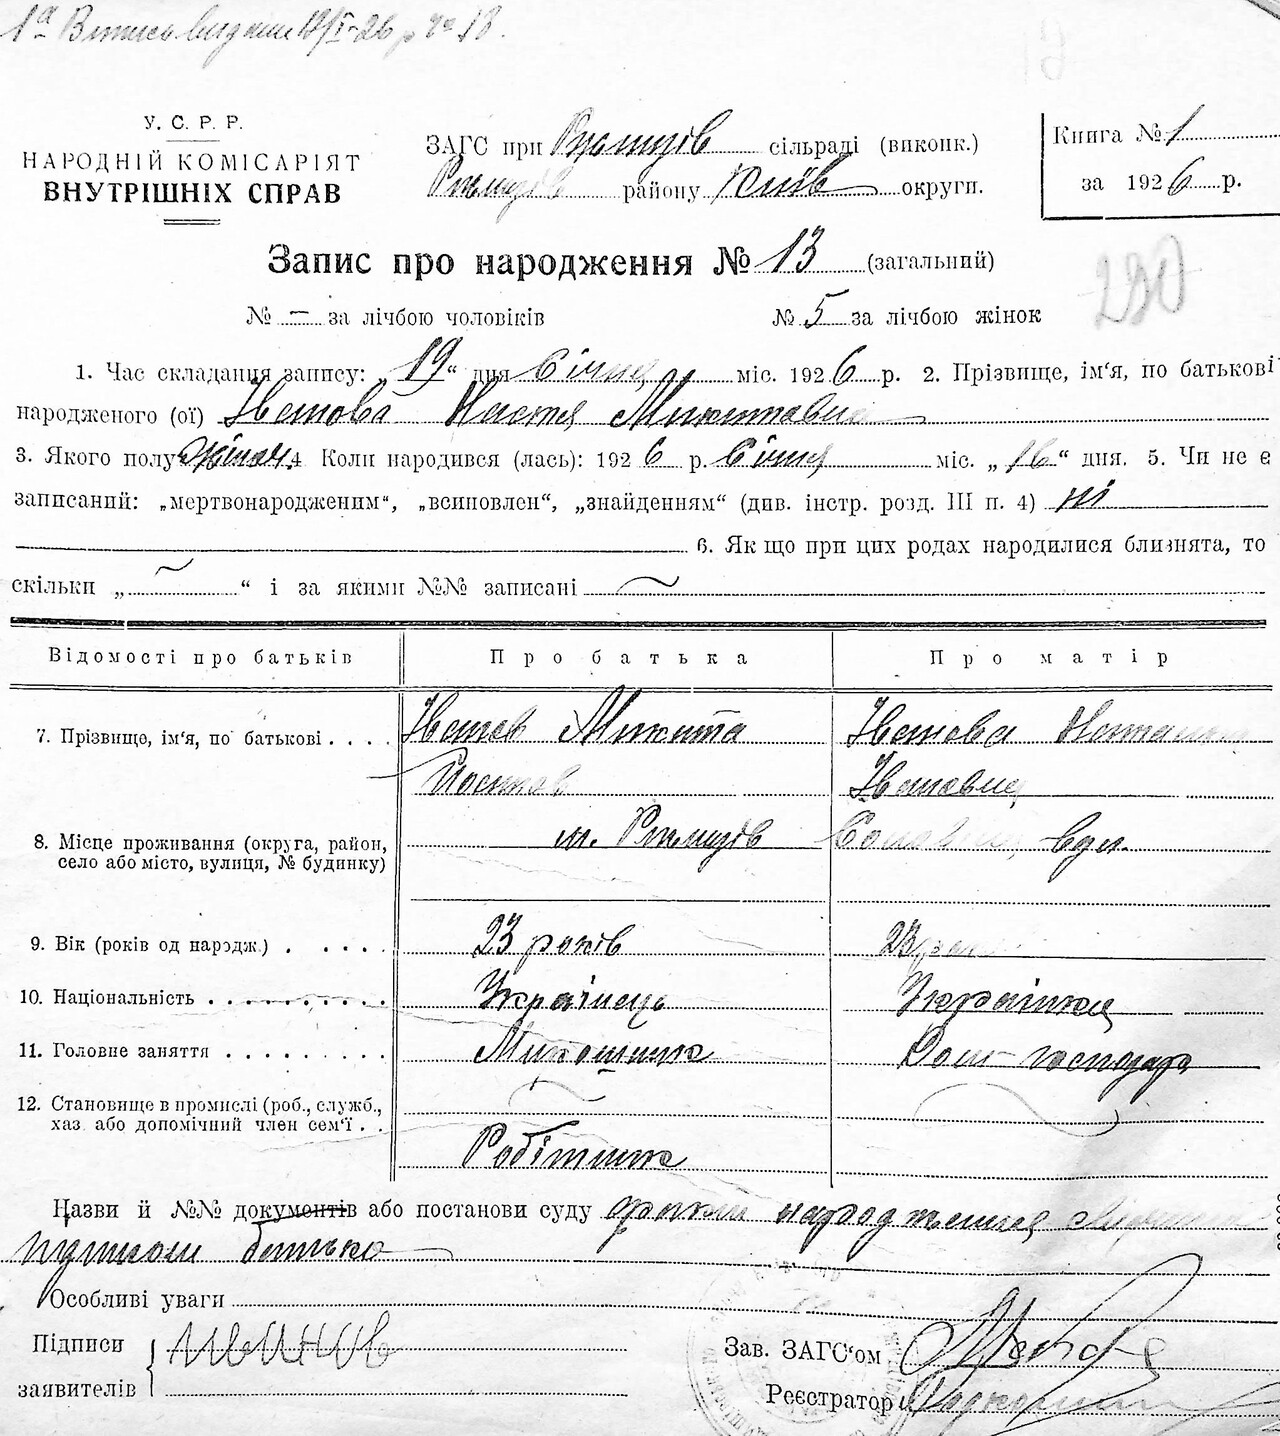 У. С. Р. Р.
НАРОДНІЙ КОМІСАРІЯТ
ВНУТРІШНІХ СПРАВ
ЗАГС при сільраді (виконк.)
району Київ округи.
Книга № 1
за 1926 р.
Запис про народження № 13 (загальний)
230
№ — за лічбою чоловіків № 5 за лічбою жінок
1. Час складання запису: „19“ дня Січня міс. 1926 р. 2. Прізвище, ім'я, по батькові
народженого (ої) Іванова Настя Микитавна
3. Якого полу жіноч. 4 Коли народився (лась): 1926 р. Січня міс. „16“ дня. 5. Чи не є
записаний: „мертвонародженим“, „всиновлен“, „знайденням“ (див. інстр. розд. III п. 4) ні
6. Як що при цих родах народилися близнята, то
скільки „ “ і за якими №№ записані
Відомості про батьків Про батька Про матір
7. Прізвище, ім'я, по батькові . . . . Іванов Микита Іванова
Івановна
8. Місце проживання (округа, район,
село або місто, вулиця, № будинку)
9. Вік (років од народж.) . . . . . 23 років 23
10. Національність . . . . . . . . . . Українець Українка
11. Головне заняття . . . . . . . . . Дом господар
12. Становище в промислі (роб., служб.,
хаз. або допомічний член сем'ї . .
Робітник
Назви й №№ документів або постанови суду народження
батько
Особливі уваги
Підписи Иванов
заявителів
Зав. ЗАГС'ом
Реєстратор